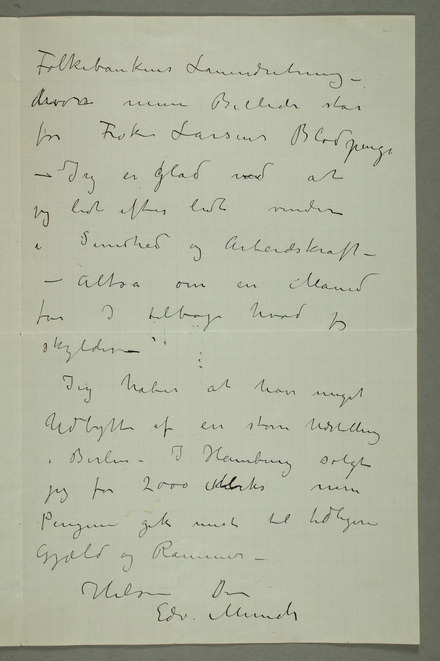 Folkebankens Laaneindretning –
hvor mine Billeder står
for Frøken Larsens Blodpenge
– Jeg er glad ved at
jeg lidt efter lidt vinder
i Sundhed og Arbeidskraft –
– Altså om en Maaned
får I tilbage hvad jeg
skylder –
Jeg håber at have noget
Udbytte af en større Udstilling
i Berlin – I Hamburg solgte
jeg for 2000 Marks men
Pengene gik mest til tidligere
Gjæld og Rammer –
Hilsen Din
Edv. Munch